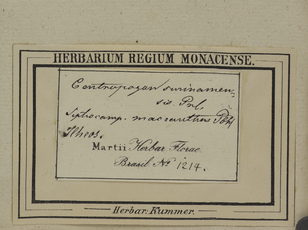 HERBARIUM REGIUM MONACENSE.
Centropogon surinamen-
sis Prl.
Siphocamp. macranthus Pohl
Ilheos.
Martii Herbar. Florae
Brasil No. 1214.
Herbar. Kummer.